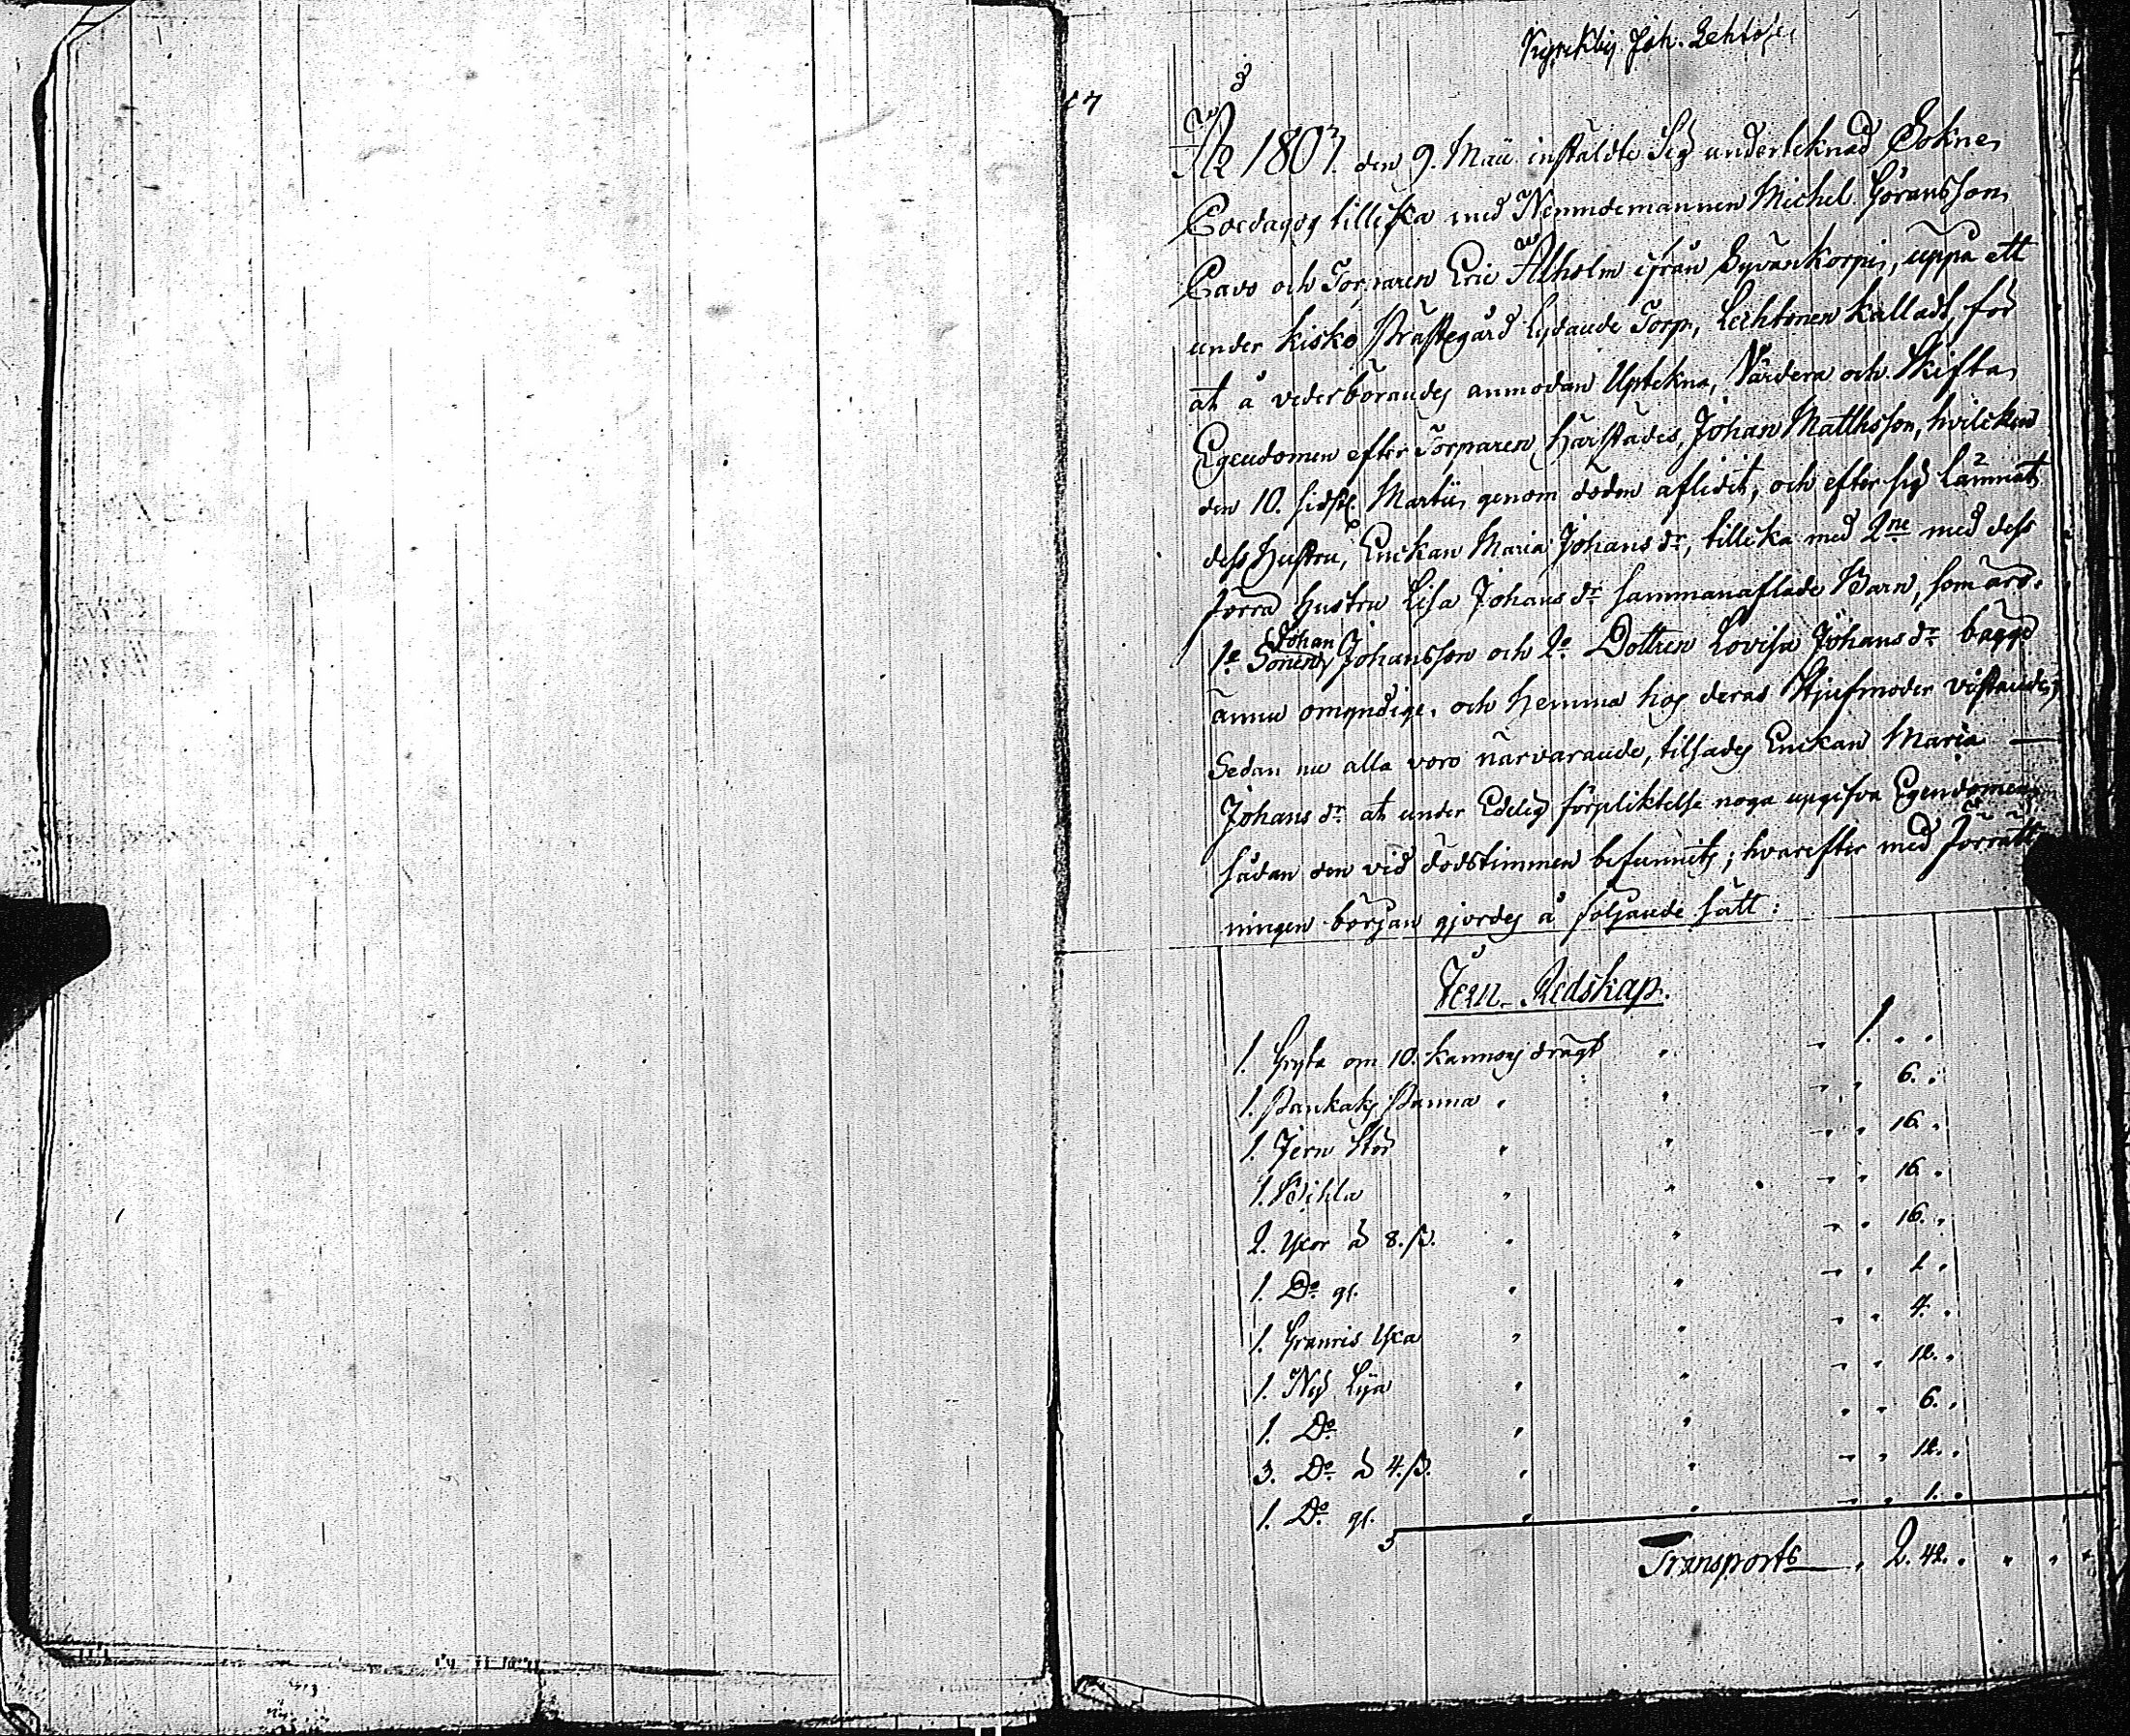 Kyrckby Joh. Lehto
17
Åhr 1803. den 9. Maii instäldte Sig undertekned Sokne
Pædagog tillika med Nemndemannen Michel Göransson
Pavo och Torparen Eric Ålholm ifrån Syvänkorpi, uppå ett
under Kisko Prästegård Lydande Torp, Lechtonen kalladt, för
at å vederbörandes anmodan Uptekna, Värdera och Skifta
Egendomen efter Torparen härstädes, Johan Matthsson, hvilcken
den 10. sidstl. Martii genom döden aflidit, och efter sig lämnat
dess Hustru, Enckan Maria Johans dr, tillika med 2ne med dess
förra hustru Lisa Johans dr sammanaflade Barn, som äro:
1o Sonen Johan Johansson och 2o Dottren Lovisa Johans dr bägge
ännu omyndige, och hemma hos deras Stjufmoder vistandes;
Sedan nu alla voro närvarande, tilsades Enckan Maria
Johans dr at under Edelig förpliktelse noga upgifva Egendomen
sådan den vid dödstimmen befunnits; hvarefter med Förrätt-
ningen början gjordes å följande sätt:
Jern-Redskap.
1. Gryta om 10. kannors drägt " 1. " "
1. Pankaks Panna " " " 6. "
1. Jern Stör " " " 16. "
1. " " " 16. "
2. Yxor à 8. s. " " " 16. "
1. Do gl. " " " 1. "
1. Granris Yxa " " " 4. "
1. Ny Lija " " " 12. "
1. Do " " " 6. "
3. Do à 4. s. " " " 12. "
1. Do gl. " " " 1. "
Transport " 2. 42. " " "